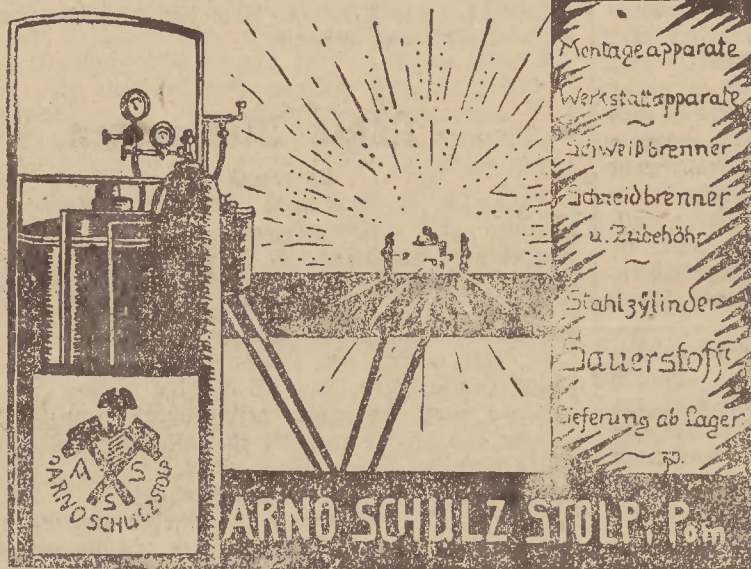 Montageapparate
Werkstattapparate
Schweißbrenner
Schneidbrenner
u. Zubehöhr
Stahlzylinder
Sauerstoff
Lieferung ab Lager
A S
S
ARNO SCHULZ STOLP
ARNO SCHULZ STOLP i Pom